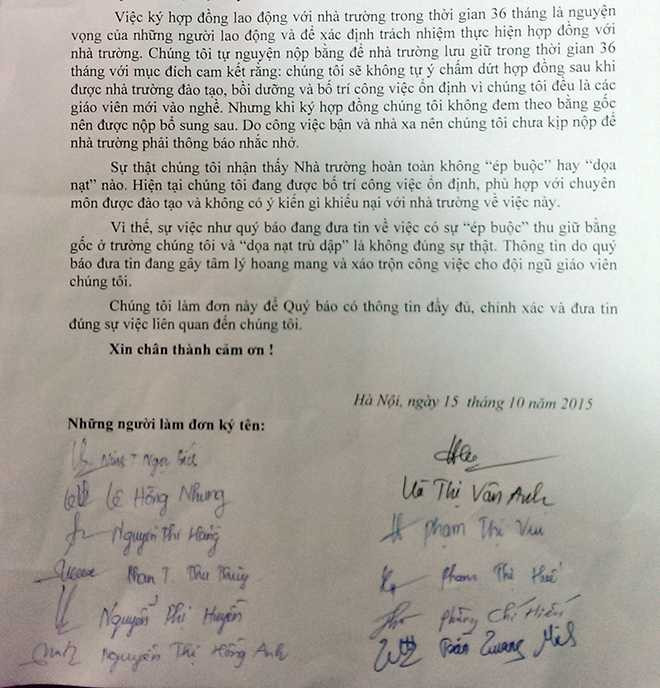 Việc ký hợp đồng lao động với nhà trường trong thời gian 36 tháng là nguyện
vọng của những người lao động và để xác định trách nhiệm thực hiện hợp đồng với
nhà trường. Chúng tôi tự nguyện nộp bằng để nhà trường lưu giữ trong thời gian 36
tháng với mục đích cam kết rằng: chúng tôi sẽ không tự ý chấm dứt hợp đồng sau khi
được nhà trường đào tạo, bồi dưỡng và bố trí công việc ổn định vì chúng tôi đều là các
giáo viên mới vào nghề. Nhưng khi ký hợp đồng chúng tôi không đem theo bằng gốc
nên được nộp bổ sung sau. Do công việc bận và nhà xa nên chúng tôi chưa kịp nộp để
nhà trường phải thông báo nhắc nhở.
Sự thật chúng tôi nhận thấy Nhà trường hoàn toàn không “ép buộc” hay “dọa
nạt” nào. Hiện tại chúng tôi đang được bố trí công việc ổn định, phù hợp với chuyên
môn được đào tạo và không có ý kiến gì khiếu nại với nhà trường về việc này.
Vì thế, sự việc như quý báo đang đưa tin về việc có sự “ép buộc” thu giữ bằng
gốc ở trường chúng tôi và “dọa nạt trù dập” là không đúng sự thật. Thông tin do quý
báo đưa tin đang gây tâm lý hoang mang và xáo trộn công việc cho đội ngũ giáo viên
chúng tôi.
Chúng tôi làm đơn này để Quý báo có thông tin đầy đủ, chính xác và đưa tin
đúng sự việc liên quan đến chúng tôi.
Xin chân thành cảm ơn !
Hà Nội, ngày 15 tháng 10 năm 2015
Những người làm đơn ký tên:
Ngọc
Vũ Thị Vân Anh
Lê Hồng Nhung
Phạm Thị Vui
Nguyễn Thị Hằng
Phan T. Thu Thủy
Phạm Thị Huế
Nguyễn Thị Huyền
Phùng Chí Hiếu
Nguyễn Thị Hồng Anh
Quang